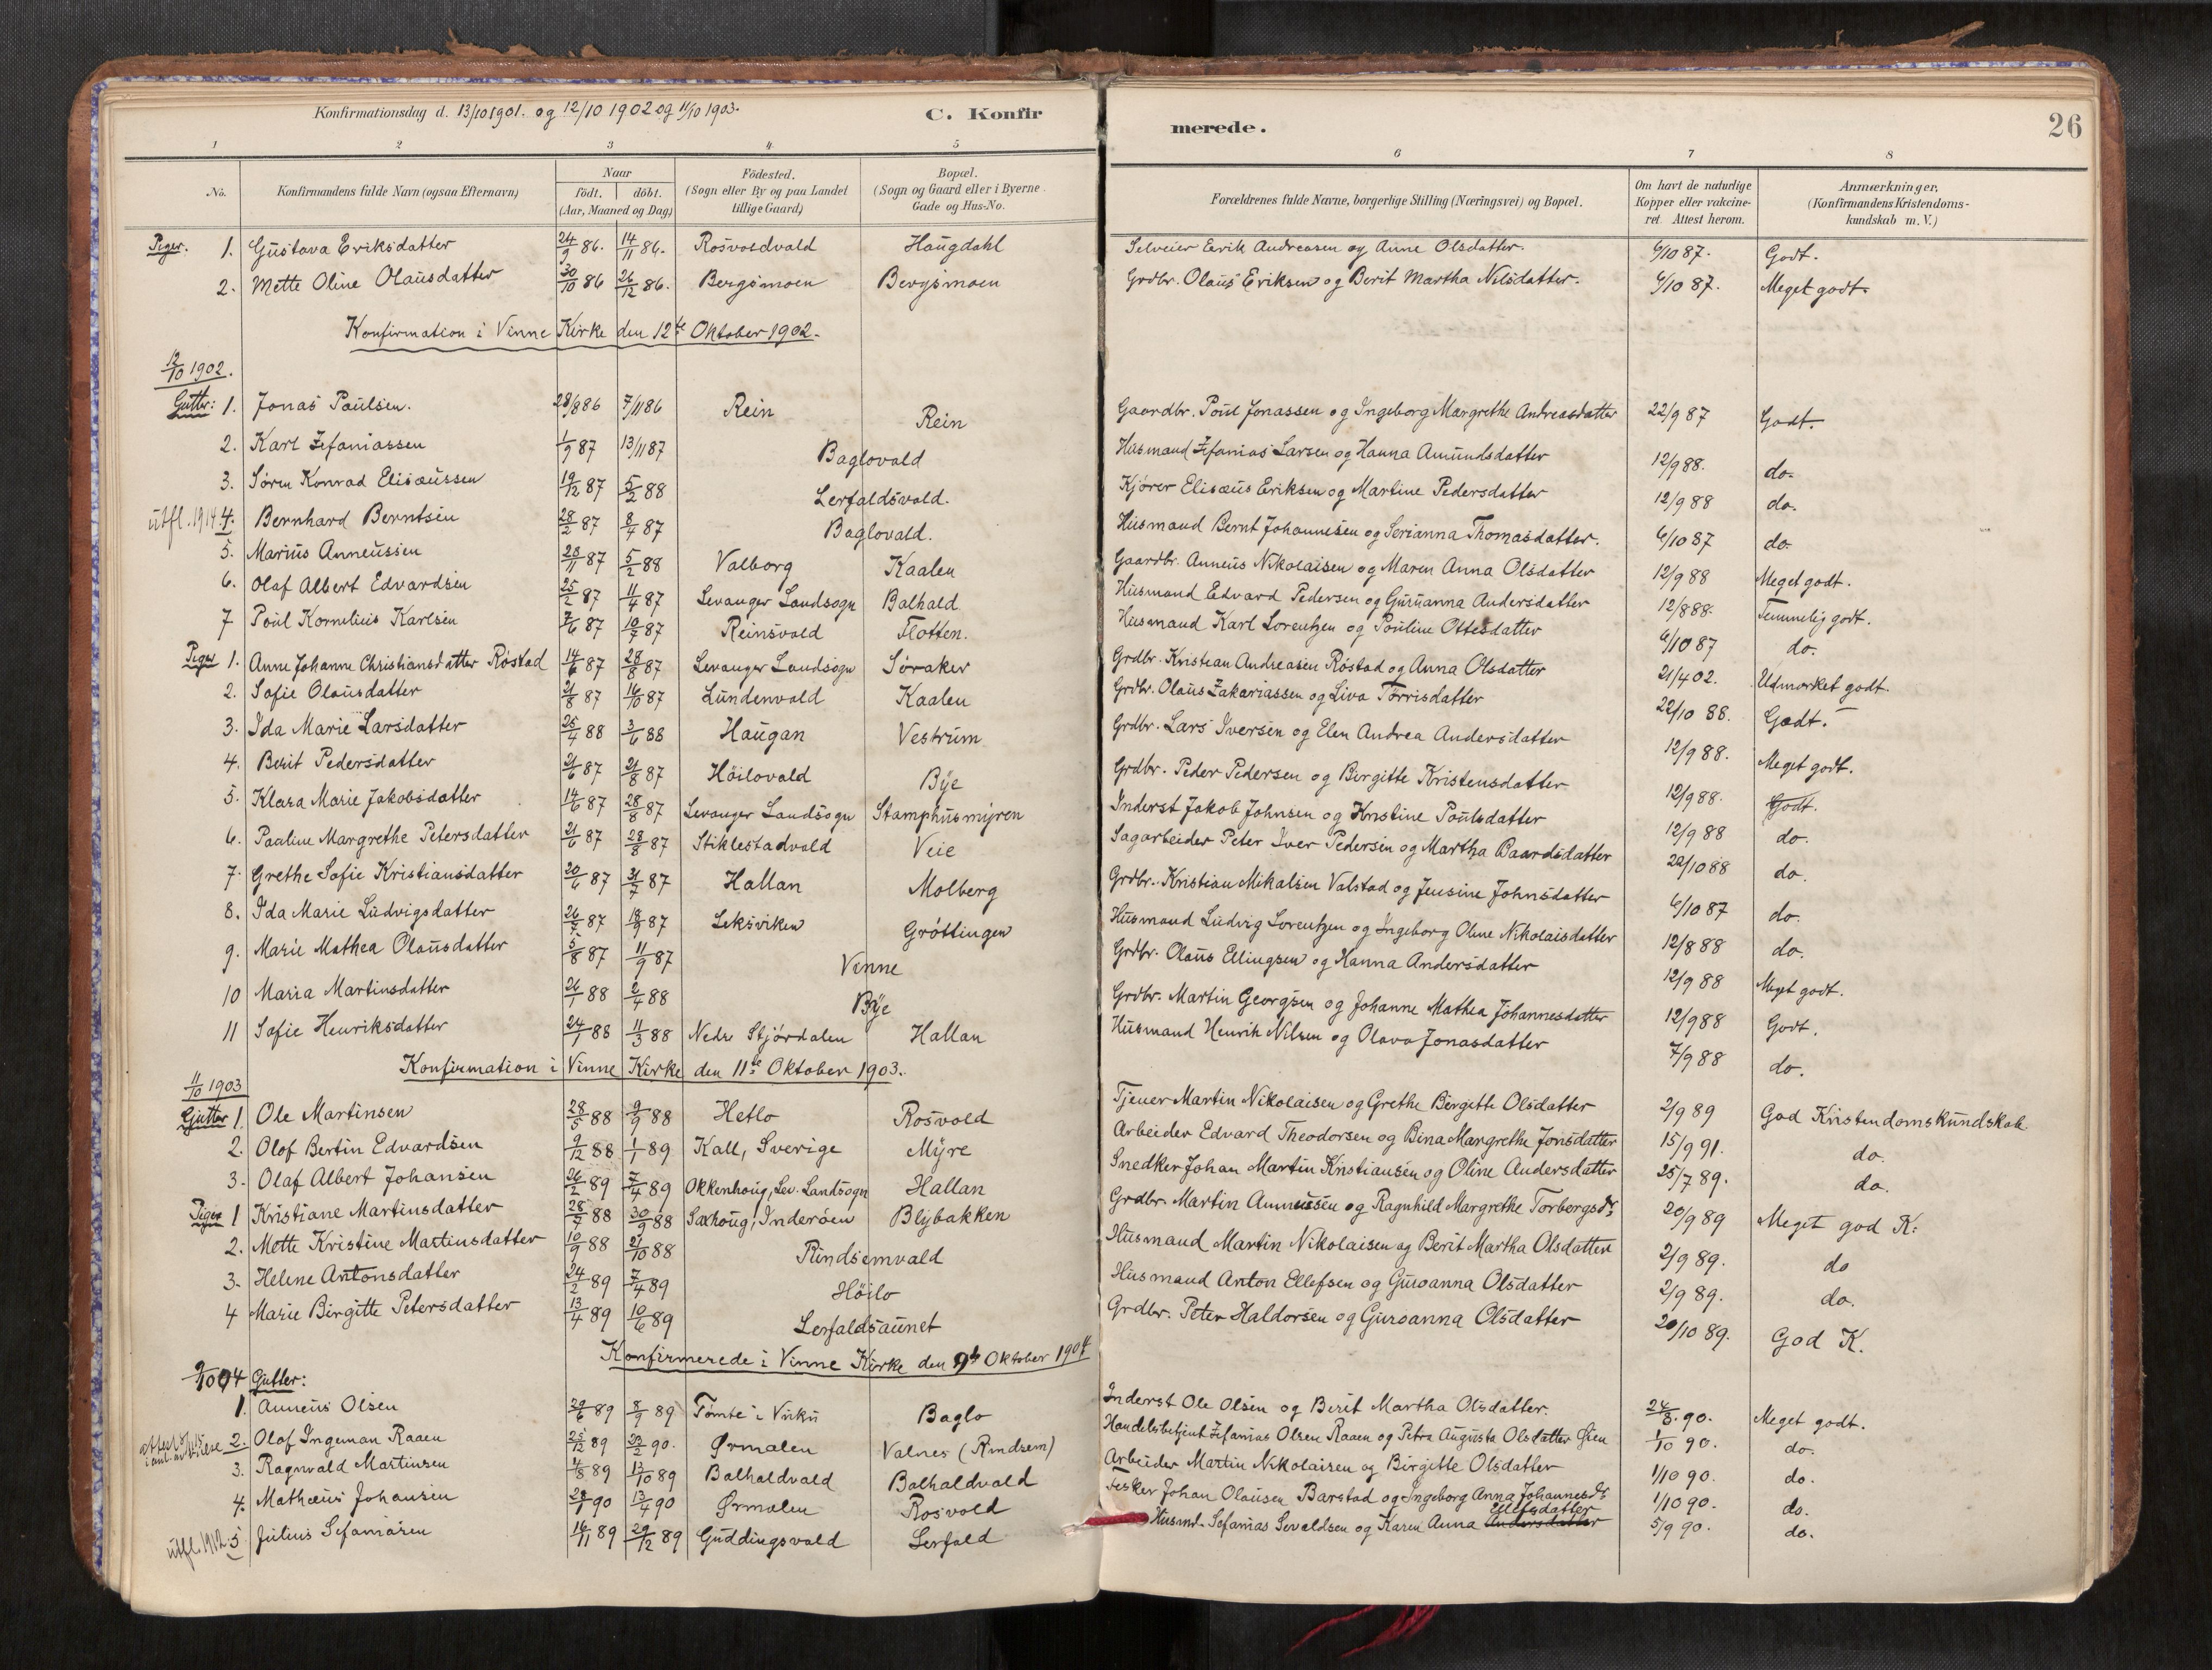 Konfirmationsdag d. 13/10 1901. og 12/10 1902 og 11/10 1903.
C. Konfirmerede.
26
1 2 3 4 5 6 7 8
No. Konfirmandens fulde Navn (ogsaa Efternavn) Naar født. døbt. (Aar, Maaned og Dag) Fødested. (Sogn eller By og paa Landet tillige Gaard) Bopæl. (Sogn og Gaard eller i Byerne Gade og Hus-No. Forældrenes fulde Navne, borgerlige Stilling (Næringsvei) og Bopæl. Om havt de naturlige Kopper eller vakcineret. Attest herom. Anmærkninger. (Konfirmandens Kristendomskundskab m. V.)
Piger. 1. Gustava Eriksdatter 24/9 86. 14/11 86. Rosvoldvald Haugdahl Selveier Eerik Andreasen og Anne Olsdatter. 6/10 87. Godt.
2. Mette Oline Olausdatter 30/10 86 26/12 86. Bergsmoen Bergsmoen Grdbr. Olaus Eriksen og Berit Martha Nilsdatter. 6/10 87. Meget godt.
Konfirmation i Vinne Kirke den 12te Oktober 1902.
12/10 1902.
Gutter: 1. Jonas Paulsen. 28/8 86 7/11 86 Rein Rein Gaardbr. Poul Jonassen og Ingeborg Margrethe Andreasdatter 22/9 87 Godt.
2. Karl Zefaniassen 1/9 87 13/11 87 Baglovald Husmand Zefanias Larsen og Hanna Amundsdatter 12/9 88. do.
3. Søren Konrad Elisæussen 19/12 87 5/2 88 Lerfaldsvald. Kjører Elisæus Eriksen og Martine Pedersdatter 12/9 88 do.
utfl. 1914. 4. Bernhard Berntsen 28/2 87 8/4 87 Baglovald. Husmand Bernt Johannesen og Serianna Thomasdatter. 6/10 87 do.
5. Marius Anneussen 28/11 87 5/2 88 Valborg Kaalen Gaardbr. Anneus Nikolaisen og Maren Anna Olsdatter 12/9 88 Meget godt.
6. Olaf Albert Edvardsen 25/2 87 11/4 87 Levanger Landsogn Balhald Husmand Edvard Pedersen og Guruanna Andersdatter 12/8 88. Temmelig godt.
7 Poul Kornelius Karlsen 7/6 87 10/7 87 Reinsvald Flotten. Husmand Karl Lorentzen og Pauline Ottesdatter 6/10 87 do.
Piger 1. Anne Johanne Christiansdatter Røstad 14/6 87 28/8 87 Levanger Landsogn Søraker Grdbr. Kristian Andreasen Røstad og Anna Olsdatter 21/4 02. Udmærket godt.
2. Sofie Olausdatter 21/8 87 16/10 87 Lundenvald Kaalen Grdbr. Olaus Zakariassen og Liva Tørrisdatter 22/10 88. Godt.
3. Ida Marie Larsdatter 25/4 88 3/6 88 Haugan Vestrum Grdbr. Lars Iversen og Elen Andrea Andersdatter 12/9 88. Meget godt.
4. Berit Pedersdatter 21/6 87 21/8 87 Høilovald Bye Grdbr. Peder Pedersen og Birgitte Kristensdatter 12/9 88. Godt.
5. Klara Marie Jakobsdatter 14/6 87 28/8 87 Levanger Landsogn Stamphusmyren Inderst Jakob Johnsen og Kristine Poulsdatter 12/9 88 do.
6. Pauline Margrethe Petersdatter 21/6 87 28/8 87 Stiklestadvald Veie Sagarbeider Peter Iver Pedersen og Martha Baardsdatter 22/10 88 do.
7. Grethe Sofie Kristiansdatter 20/6 87 31/7 87 Hallan Molberg Grdbr. Kristian Mikalsen Valstad og Jensine Johnsdatter 6/10 87 do.
8. Ida Marie Ludvigsdatter 26/7 87 18/9 87 Leksviken Grøttingen Husmand Ludvig Lorentzen og Ingeborg Oline Nikolaisdatter 12/8 88 do.
9. Marie Mathea Olausdatter 5/8 87 11/9 87 Vinne Grdbr. Olaus Ellingsen og Hanna Andersdatter 12/9 88 Meget godt.
10 Maria Martinsdatter 26/1 88 2/4 88 Bye Grdbr. Martin Georgsen og Johanne Mathea Johannesdatter 12/9 88 Godt.
11 Sofie Henriksdatter 24/1 88 11/3 88 Nedre Stjørdalen Hallan Husmand Henrik Nilsen og Olava Jonasdatter 7/9 88 do.
Konfirmation i Vinne Kirke den 11te Oktober 1903.
11/10 1903
Gutter 1. Ole Martinsen 28/5 88 9/9 88 Hetlo Rosvold Tjener Martin Nikolaisen og Grethe Birgitte Olsdatter 2/9 89 God Kristendomskundskab
2. Olof Bertin Edvardsen 9/12 88 1/1 89 Kall, Sverige Myre Arbeider Edvard Theodorsen og Bina Margrethe Jonsdatter 15/9 91. do.
3. Olaf Albert Johansen 26/2 89 7/4 89 Okkenhoug, Lev. Landsogn Hallan Snedker Johan Martin Kristiansen og Oline Andersdatter 25/7 89. do.
Piger 1 Kristiane Martinsdatter 28/7 88 30/9 88 Saxhoug, Inderøen Blybakken Grdbr. Martin Anneussen og Ragnhild Margrethe Torbergsdr. 20/9 89 Meget god K.
2. Mette Kristine Martinsdatter 10/9 88 21/10 88 Rindsemvald Husmand Martin Nikolaisen og Berit Martha Olsdatter 2/9 89. do
3. Helene Antonsdatter 24/2 89 7/4 89 Høilo Husmand Anton Ellefsen og Guroanna Olsdatter 2/9 89. do.
4 Marie Birgitte Petersdatter 13/4 89 10/6 89 Lerfaldsaunet Grdbr. Peter Haldorsen og Guroanna Olsdatter 20/10 89. God K.
Konfirmerede i Vinne Kirke den 9de Oktober 1904
9/10 04 Gutter:
1. Anneus Olsen 29/6 89 8/9 89 Tømte i Vuku Baglo Inderst Ole Olsen og Berit Martha Olsdatter. 24/3. 90. Meget godt.
2. Olaf Ingeman Raaen 25/12 89 23/2 90. Ørmalen Valnes (Rindsem) Handelsbetjent Zefanias Olsen Raaen og Petra Augusta Olsdatter 1/10 90. do.
3. Ragnvald Martinsen 4/8 89 13/10 89 Balhaldvald Balhaldvald Arbeider Martin Nikolaisen og Birgitte Olsdatter 1/10 90. do.
4. Mathæus Johansen 28/1 90 13/4 90 Ørmalen Rosvold Johan Olausen Barstad og Ingeborg Anna Johannesdr. 1/10 90. do.
utfl. 1912. 5 Julius Sefaniasen 16/11 89 29/12 89 Guddingsvald Lerfald Husmd. Sefanias Sevaldsen og Karen Anna Ellefsdatter Andersdatter 5/9 90. do.